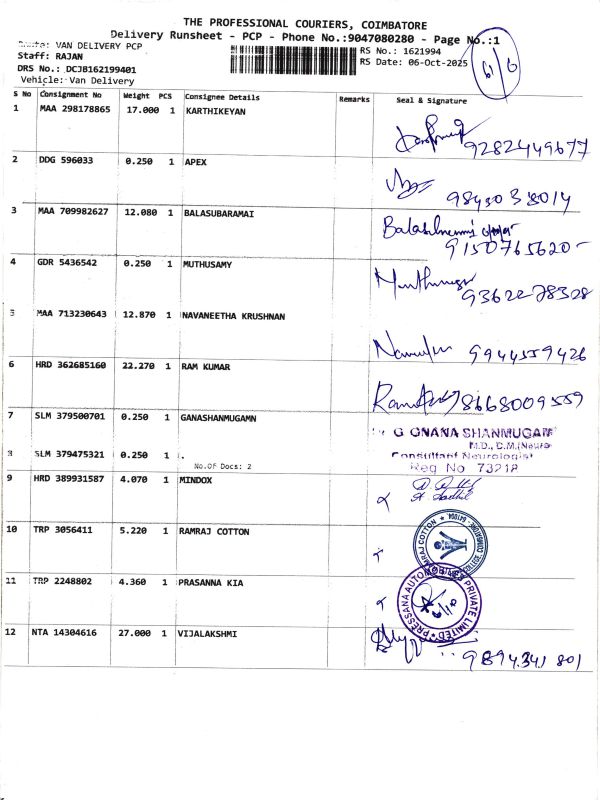 THE PROFESSIONAL COURIERS, COIMBATORE
Delivery Runsheet - PCP - Phone No.:9047080280 - Page No.:1
Route: VAN DELIVERY PCP
RS No.: 1621994
Staff: RAJAN
RS Date: 06-Oct-2025
DRS No.: DCJB162199401
Vehicle: Van Delivery
S No Consignment No Weight PCS Consignee Details Remarks Seal & Signature
1 MAA 298178865 17.000 1 KARTHIKEYAN
9282449677
2 DDG 596033 0.250 1 APEX
9843038014
3 MAA 709982627 12.080 1 BALASUBARAMAI
9150765620
4 GDR 5436542 0.250 1 MUTHUSAMY
9362278328
5 MAA 713230643 12.870 1 NAVANEETHA KRUSHNAN
9944559426
6 HRD 362685160 22.270 1 RAM KUMAR
8668009559
7 SLM 379500701 0.250 1 GANASHANMUGAMN
G GNANA SHANMUGAM
M.D., D.M.(Neuro
8 SLM 379475321 0.250 1 .
Consultant Neurologist
No.OF Docs: 2
Reg No 73218
9 HRD 389931587 4.070 1 MINDOX
10 TRP 3056411 5.220 1 RAMRAJ COTTON
RAMRAJ COTTON
11 TRP 2248802 4.360 1 PRASANNA KIA
PRESSANA AUTOMOBILES PRIVATE LIMITED
12 NTA 14304616 27.000 1 VIJALAKSHMI
9894341801